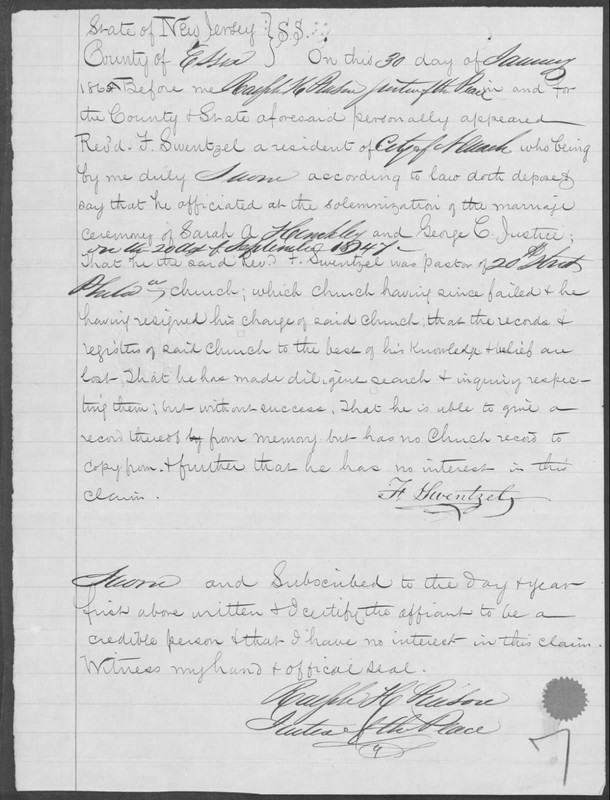 State of New Jersey } S.S.
County of Essex } On this 30 day of January
186 Before me Ralph H justice of the Peace in and for
the County & State aforesaid personally appeared
Rev'd. F. Swentzel a resident of City of Newark who being
by me duly Sworn according to law doth depose &
say that he officiated at the solemnization of the marriage
ceremony of Sarah A. and George C. Justice;
on the 20 day of September 1847
That he the said Rev'd F. Swentzel was pastor of 20th Street
Phila church; which church having since failed & he
having resigned his charge of said church; that the records &
registers of said church to the best of his knowledge & belief are
lost; That he has made diligent search & inquiry respec-
ting them; but without success; That he is able to give a
record thereof by from memory but has no Church record to
copy from. & further that he has no interest in this
claim.
F. Swentzel
Sworn and Subscribed to the day & year
first above written & I certify the affiant to be a
credible person & that I have no interest in this claim.
Witness my hand & offical seal.
Ralph H
Justice of the Peace
7